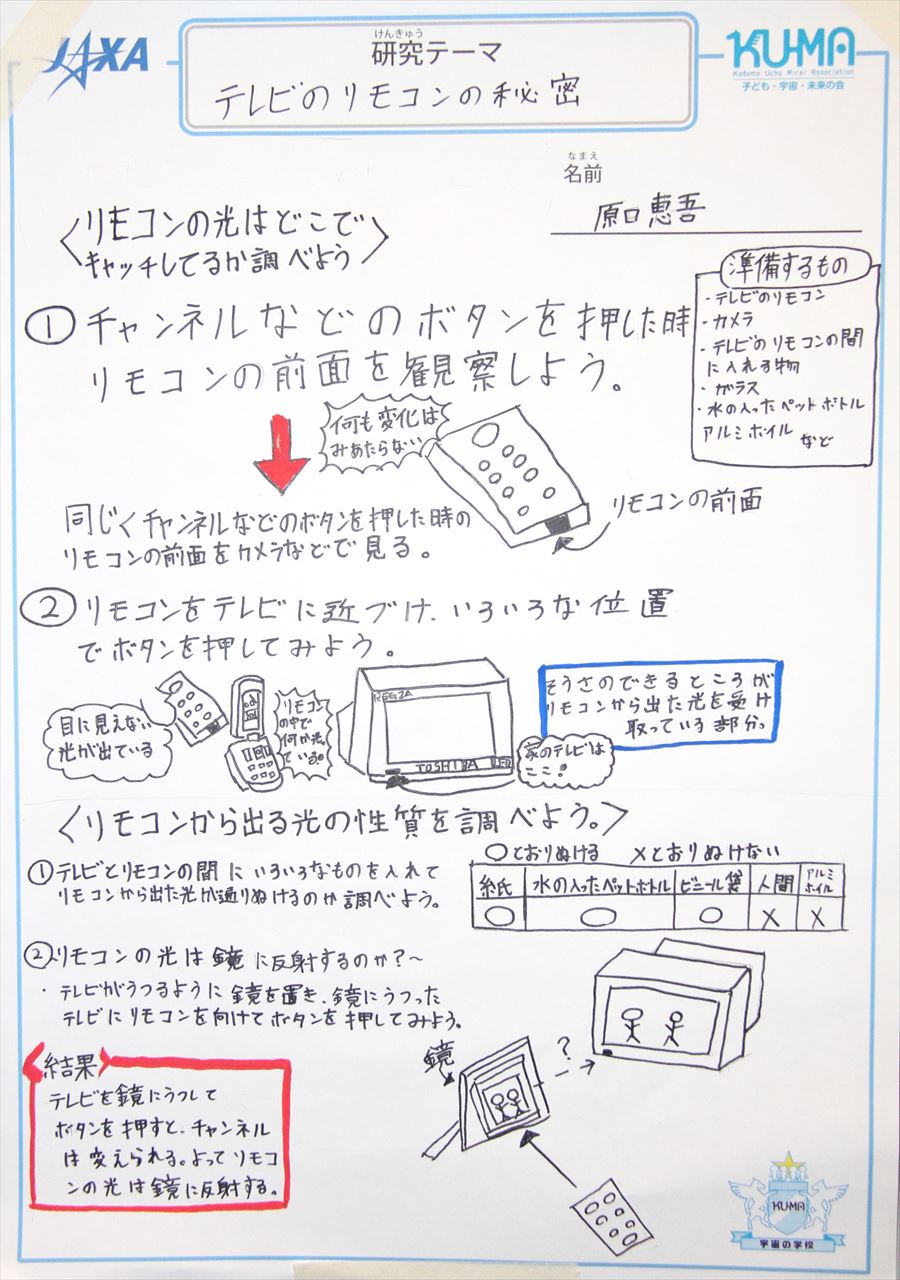 JAXA
けんきゅう
研究テーマ
テレビのリモコンの秘密
KU-MA
Kodomo Uchu Mirai Association
子ども・宇宙・未来の会
なまえ
名前
原口恵吾
〈リモコンの光はどこで
キャッチしてるか調べよう〉
準備するもの
・テレビのリモコン
・カメラ
・テレビのリモコンの間
に入れる物
・ガラス
・水の入ったペットボトル
アルミホイル
など
① チャンネルなどのボタンを押した時
リモコンの前面を観察しよう。
何も変化は
みあたらない
リモコンの前面
同じくチャンネルなどのボタンを押した時の
リモコンの前面をカメラなどで見る。
② リモコンをテレビに近づけ、いろいろな位置
でボタンを押してみよう。
目に見えない
光が出ている
リモコン
の中で
何か光っ
ている。
REGZA
TOSHIBA
家のテレビは
ここ!
そうさのできるところが
リモコンから出た光を受け
取っている部分。
〈リモコンから出る光の性質を調べよう。〉
①テレビとリモコンの間にいろいろなものを入れて
リモコンから出た光が通りぬけるのか調べよう。
○とおりぬける ×とおりぬけない
紙 水の入ったペットボトル ビニール袋 人間 アルミホイル
○ ○ ○ × ×
②リモコンの光は鏡に反射するのか?~
・テレビがうつるように鏡を置き、鏡にうつった
テレビにリモコンを向けてボタンを押してみよう。
鏡
?
結果
テレビを鏡にうつして
ボタンを押すと、チャンネル
は変えられる。よってリモコ
ンの光は鏡に反射する。
KU-MA
宇宙の学校